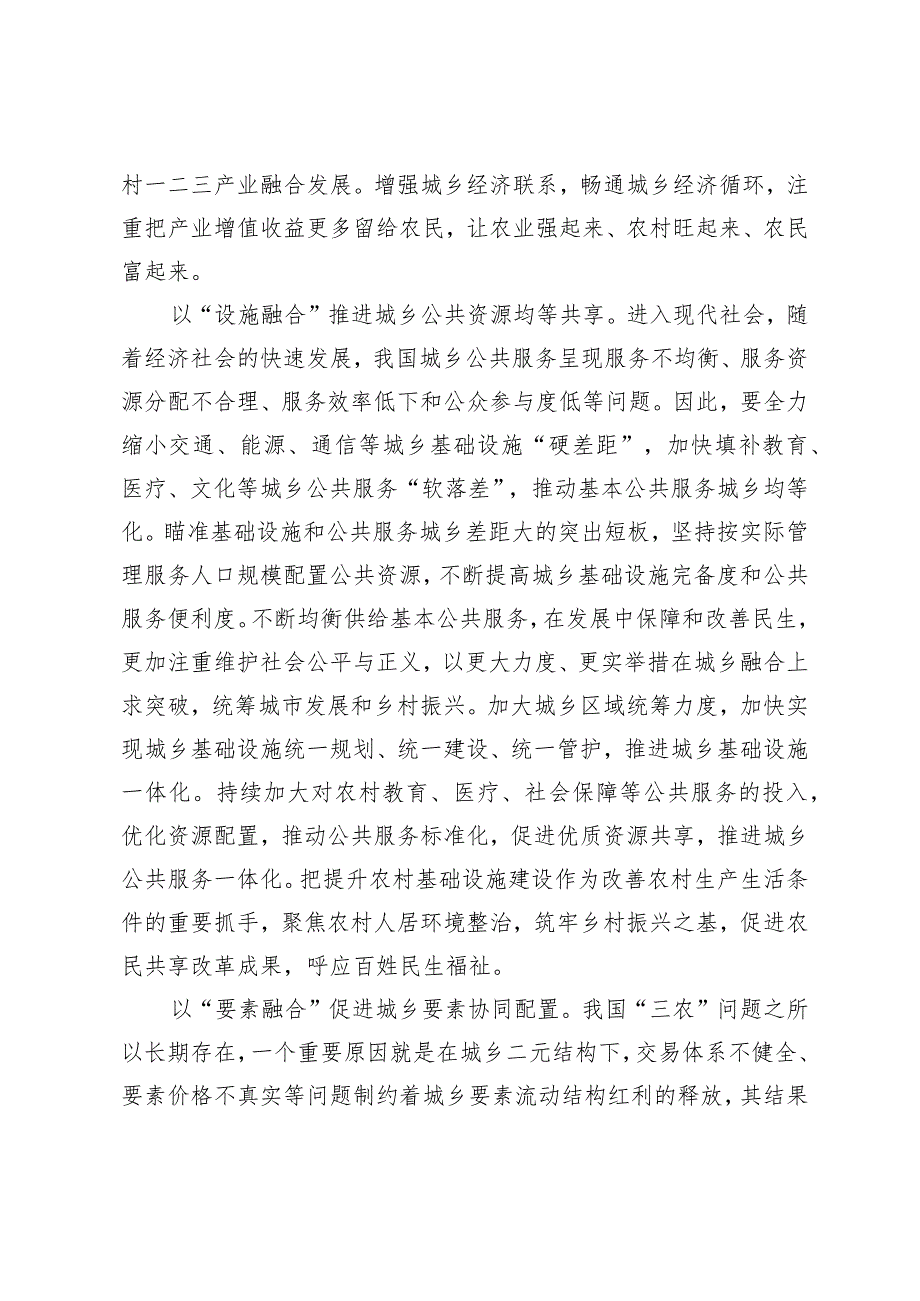 村一二三产业融合发展。增强城乡经济联系，畅通城乡经济循环，注
重把产业增值收益更多留给农民，让农业强起来、农村旺起来、农民
富起来。
以“设施融合”推进城乡公共资源均等共享。进入现代社会，随
着经济社会的快速发展，我国城乡公共服务呈现服务不均衡、服务资
源分配不合理、服务效率低下和公众参与度低等问题。因此，要全力
缩小交通、能源、通信等城乡基础设施“硬差距”，加快填补教育、
医疗、文化等城乡公共服务“软落差”，推动基本公共服务城乡均等
化。瞄准基础设施和公共服务城乡差距大的突出短板，坚持按实际管
理服务人口规模配置公共资源，不断提高城乡基础设施完备度和公共
服务便利度。不断均衡供给基本公共服务，在发展中保障和改善民生，
更加注重维护社会公平与正义，以更大力度、更实举措在城乡融合上
求突破，统筹城市发展和乡村振兴。加大城乡区域统筹力度，加快实
现城乡基础设施统一规划、统一建设、统一管护，推进城乡基础设施
一体化。持续加大对农村教育、医疗、社会保障等公共服务的投入，
优化资源配置，推动公共服务标准化，促进优质资源共享，推进城乡
公共服务一体化。把提升农村基础设施建设作为改善农村生产生活条
件的重要抓手，聚焦农村人居环境整治，筑牢乡村振兴之基，促进农
民共享改革成果，呼应百姓民生福祉。
以“要素融合”促进城乡要素协同配置。我国“三农”问题之所
以长期存在，一个重要原因就是在城乡二元结构下，交易体系不健全、
要素价格不真实等问题制约着城乡要素流动结构红利的释放，其结果